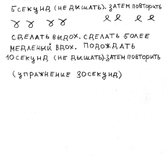 5 СЕКУНД (НЕ ДЫШАТЬ). ЗАТЕМ ПОВТОРИТЬ
СДЕЛАТЬ ВЫДОХ. СДЕЛАТЬ БОЛЕЕ
МЕДЛЕНЫЙ ВДОХ. ПОДОЖДАТЬ
10 СЕКУНД (НЕ ДЫШАТЬ). ЗАТЕМ ПОВТОРИТЬ
(УПРАЖНЕНИЕ 30 СЕКУНД)